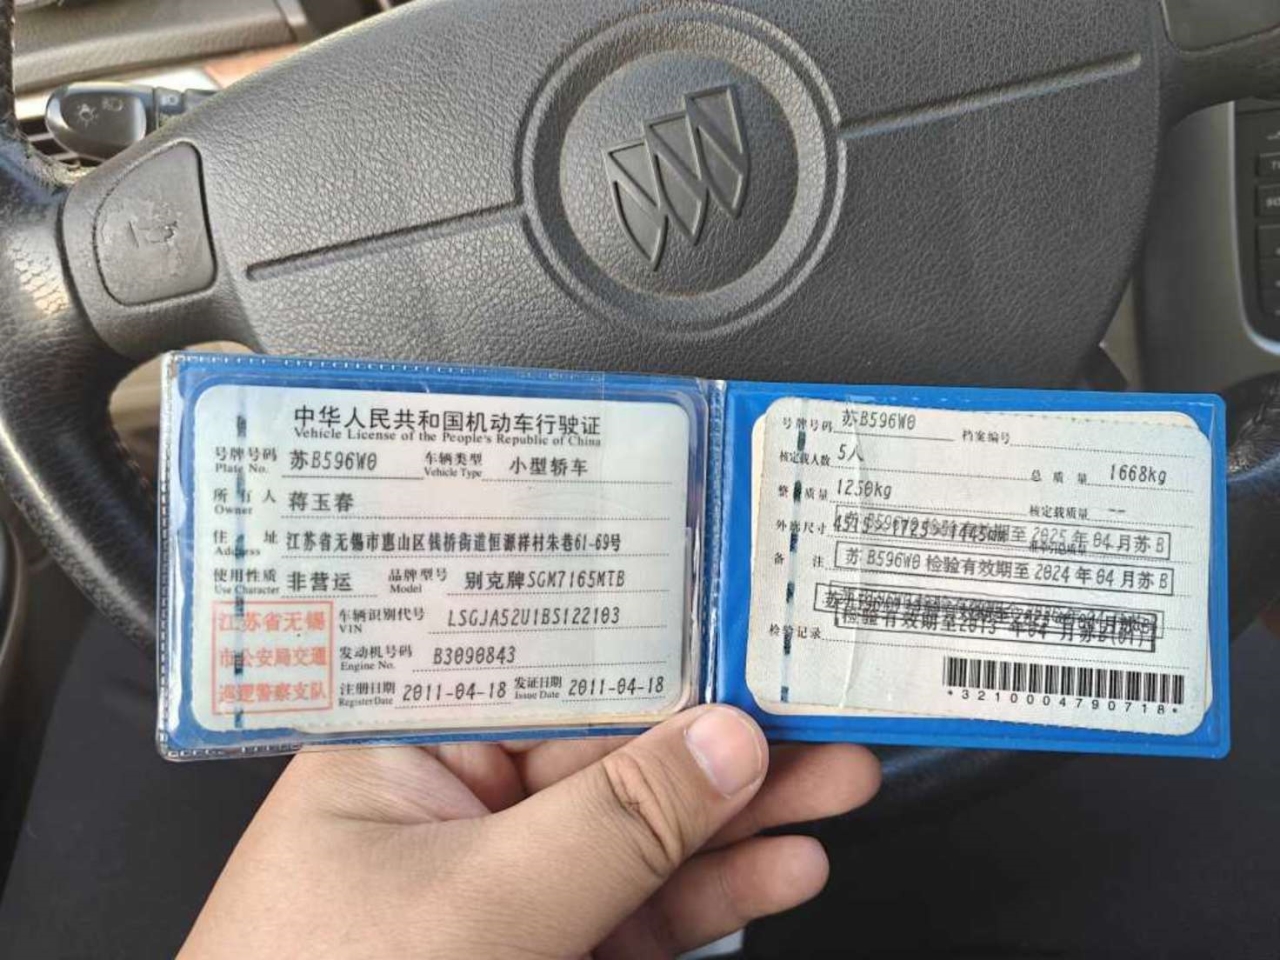 中华人民共和国机动车行驶证
Vehicle License of the People's Republic of China
号牌号码 苏B596W0 车辆类型 小型轿车
Plate No. Vehicle Type
所有人 蒋玉春
Owner
住址 江苏省无锡市惠山区钱桥街道恒源祥村朱巷61-69号
Address
使用性质 非营运 品牌型号 别克牌SGM7165MTB
Use Character Model
江苏省无锡
市公安局交通
巡逻警察支队
车辆识别代号 LSGJA52U1BS122103
VIN
发动机号码 B3090843
Engine No.
注册日期 2011-04-18 发证日期 2011-04-18
Register Date Issue Date
号牌号码 苏B596W0 档案编号
核定载人数 5人 总质量 1668kg
整备质量 1250kg 核定载质量 --
外廓尺寸
有效期至 2025年04月苏B
备注 苏B596W0 检验有效期至 2024年04月苏B
检验记录
*3210004790718*